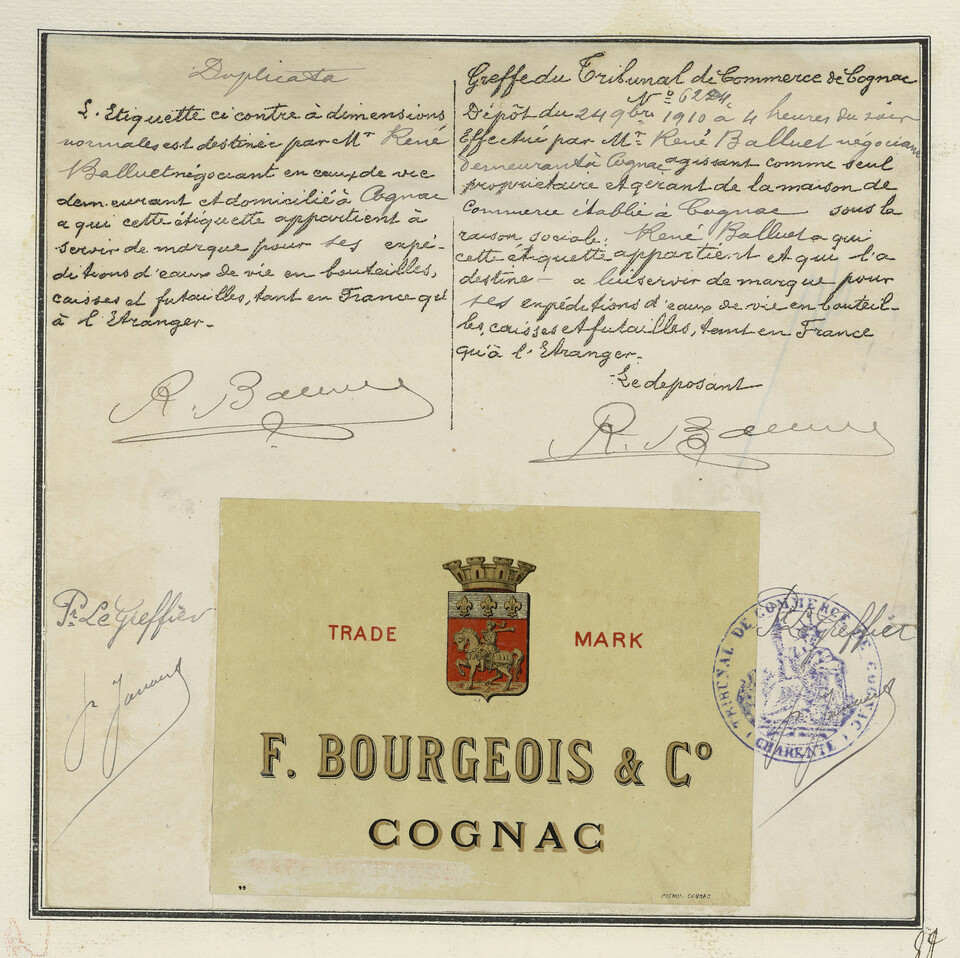 Duplicata
L'Etiquette ci contre à dimensions
normales est destinée par Mr René
Balluet négociant en eaux de vie
demeurant et domicilié à Cognac
a qui cette étiquette appartient à
servir de marque pour ses expé-
ditions d'eaux de vie en bouteilles,
caisses et futailles, tant en France qu'
à l'Etranger.-
Greffe du Tribunal de Commerce de Cognac
No 6224
Dépôt du 24 9bre 1910 à 4 heures du soir
Effectué par Mr René Balluet négociant
demeurant à Cognac agissant comme seul
propriétaire et gérant de la maison de
Commerce établie à Cognac sous la
raison sociale: René Balluet a qui
cette étiquette appartient et qui l'a
destine- a lui servir de marque pour
ses expéditions d'eaux de vie en bouteil-
les, caisses et futailles, tant en France
qu'à l'Etranger.-
Le deposant
R. Balluet
R. Balluet
TRADE MARK
F. BOURGEOIS & Co
COGNAC
Pr Le Greffier
Pr Le Greffier
TRIBUNAL DE COMMERCE DE COGNAC
(CHARENTE)
COGNAC